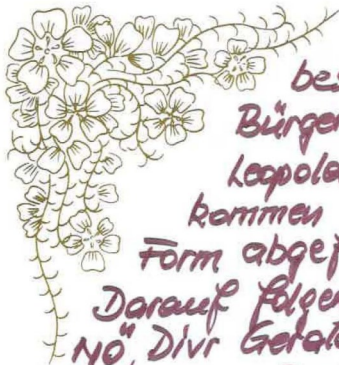 bes
Bürger
Leopold
kommen
Form abgef
Darauf folgen
NÖ", Divr Gerald